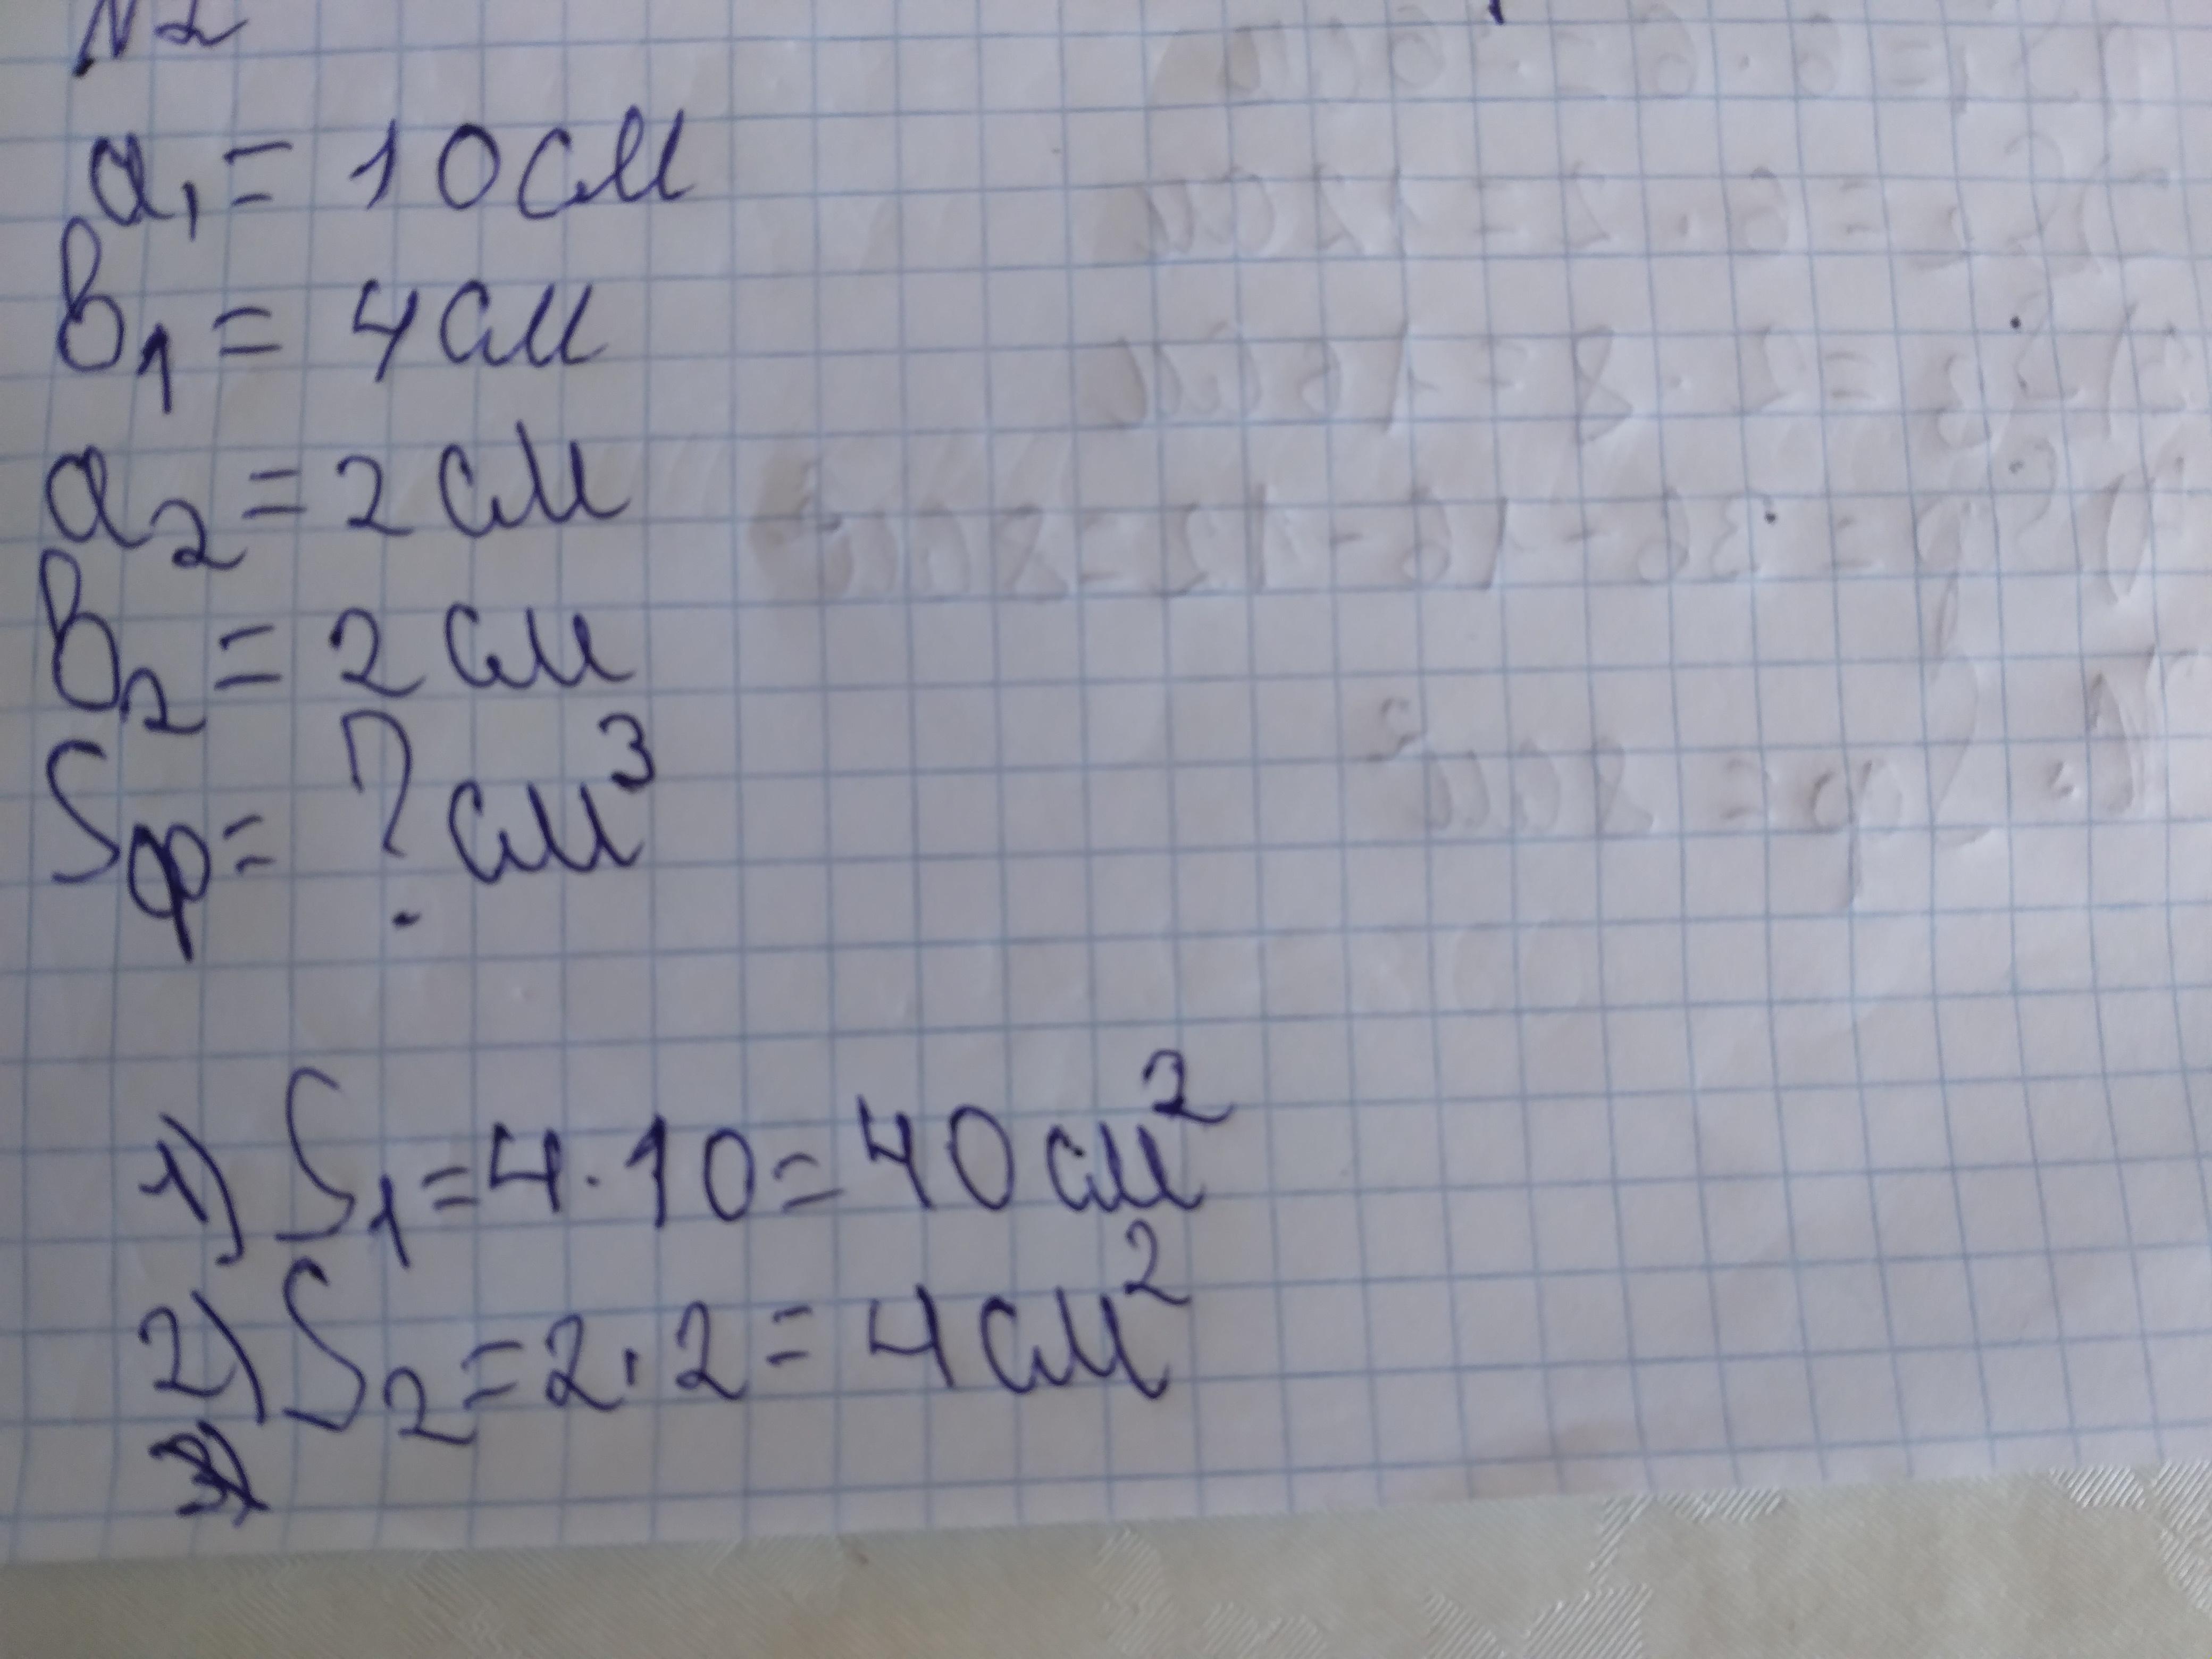 N2
a₁ = 10 см
b₁ = 4 см
a₂ = 2 см
b₂ = 2 см
Sф = ? см³
1) S₁ = 4 · 10 = 40 см²
2) S₂ = 2 · 2 = 4 см²